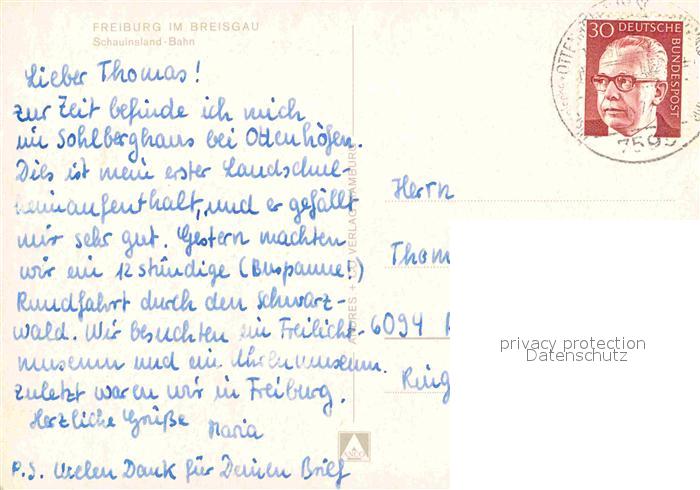 FREIBURG IM BREISGAU
Schauinsland-Bahn
Lieber Thomas!
zur Zeit befinde ich mich
im Sohlberghaus bei Ottenhöfen.
Dies ist mein erster Landschul-
heimaufenthalt, und er gefällt
mir sehr gut. Gestern machten
wir ein 12 stündige (Buspanne!)
Rundfahrt durch den Schwarz-
wald. Wir besuchten ein Freilicht-
museum und ein Uhrenmuseum.
Zuletzt waren wir in Freiburg.
Herzliche Grüße
Maria
P.S. Vielen Dank für Deinen Brief
VERLAG HAMBURG
30 DEUTSCHE
BUNDESPOST
7593
Herrn
Thom
6094
Ring
privacy protection
Datenschutz